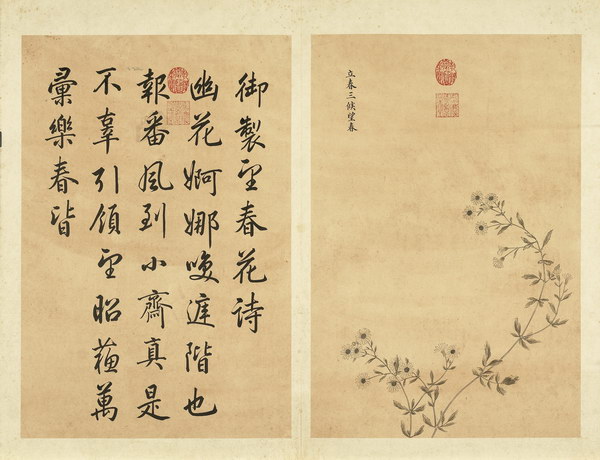 立春三候望春
御製望春花詩
幽花婀娜暎庭階也
報番風到小齋真是
不辜引領望昭蘇萬
彙樂春皆